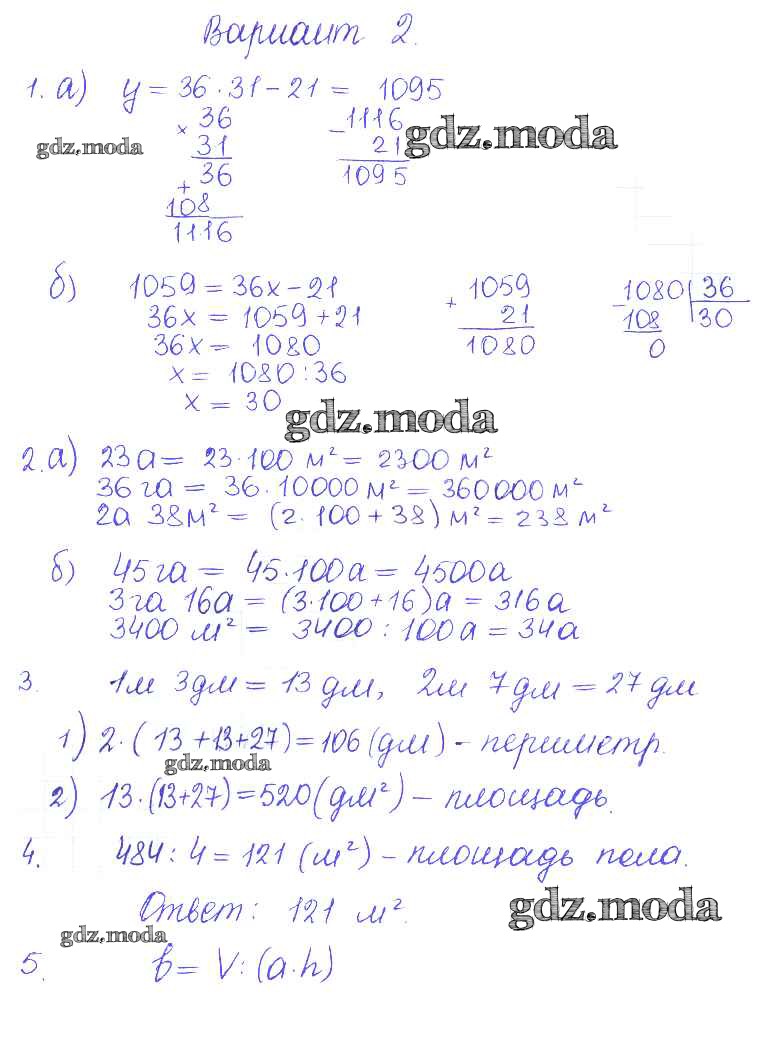 Вариант 2.
1. а) y = 36 · 31 – 21 = 1095
× 36
31
+ 36
108
1116
– 1116
21
1095
gdz.moda
gdz.moda
б) 1059 = 36x – 21
36x = 1059 + 21
36x = 1080
x = 1080 : 36
x = 30
+ 1059
21
1080
– 1080 36
108 30
0
gdz.moda
2. а) 23 а = 23 · 100 м² = 2300 м²
36 га = 36 · 10000 м² = 360000 м²
2а 38 м² = (2 · 100 + 38) м² = 238 м²
б) 45 га = 45 · 100 а = 4500 а
3 га 16 а = (3 · 100 + 16) а = 316 а
3400 м² = 3400 : 100 а = 34 а
3. 1 м 3 дм = 13 дм, 2 м 7 дм = 27 дм
1) 2 · (13 + 13 + 27) = 106 (дм) – периметр.
gdz.moda
2) 13 · (13 + 27) = 520 (дм²) – площадь.
4. 484 : 4 = 121 (м²) – площадь пола.
Ответ: 121 м².
gdz.moda
gdz.moda
5. b = V : (a · h)